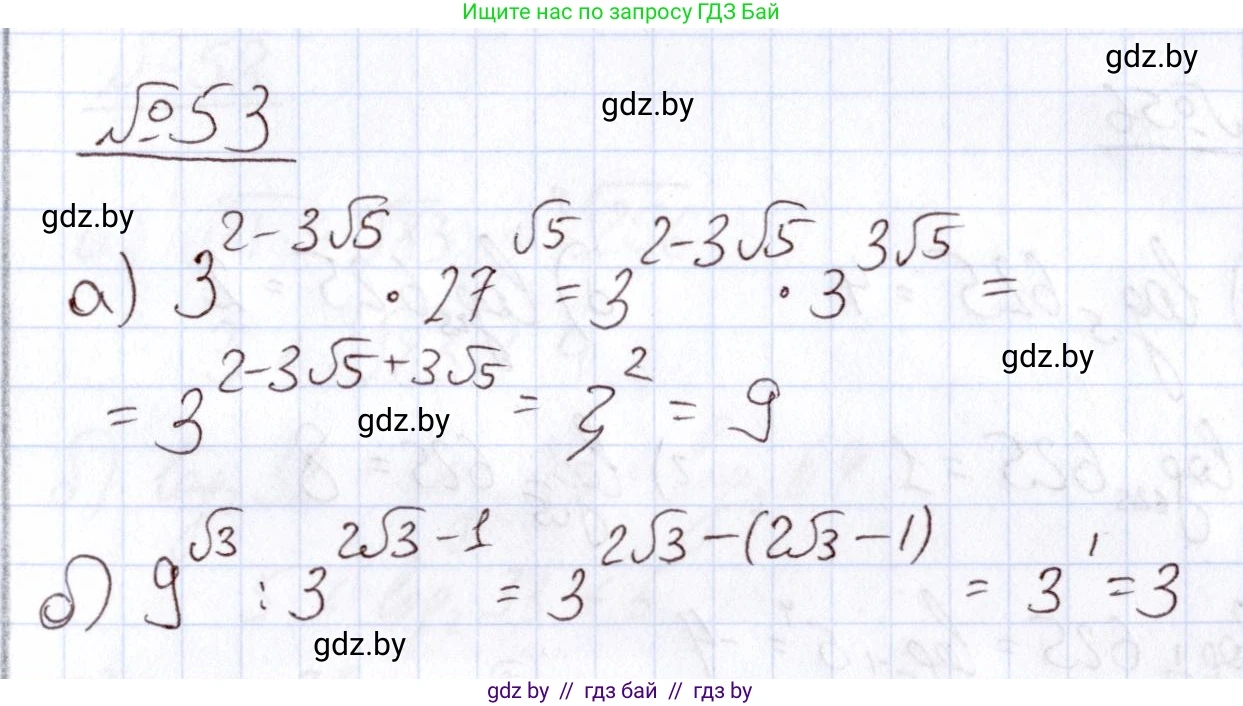 Ищите нас по запросу ГДЗ Бай
gdz.by
gdz.by
№53
gdz.by
а) 3^{2-3√5} · 27^{√5} = 3^{2-3√5} · 3^{3√5} =
gdz.by
= 3^{2-3√5+3√5} = 3^2 = 9
gdz.by
б) 9^{√3} : 3^{2√3-1} = 3^{2√3-(2√3-1)} = 3^1 = 3
gdz.by
gdz by // гдз бай // гдз by